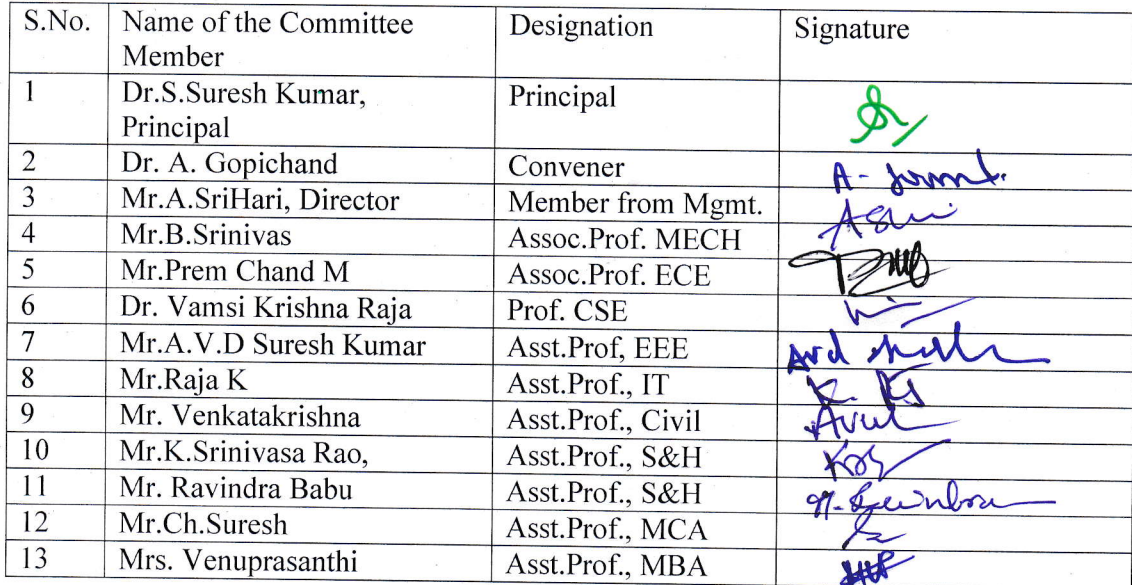 S.No. Name of the Committee Member Designation Signature
1 Dr.S.Suresh Kumar, Principal Principal
2 Dr. A. Gopichand Convener
3 Mr.A.SriHari, Director Member from Mgmt.
4 Mr.B.Srinivas Assoc.Prof. MECH
5 Mr.Prem Chand M Assoc.Prof. ECE
6 Dr. Vamsi Krishna Raja Prof. CSE
7 Mr.A.V.D Suresh Kumar Asst.Prof, EEE
8 Mr.Raja K Asst.Prof., IT
9 Mr. Venkatakrishna Asst.Prof., Civil
10 Mr.K.Srinivasa Rao, Asst.Prof., S&H
11 Mr. Ravindra Babu Asst.Prof., S&H
12 Mr.Ch.Suresh Asst.Prof., MCA
13 Mrs. Venuprasanthi Asst.Prof., MBA